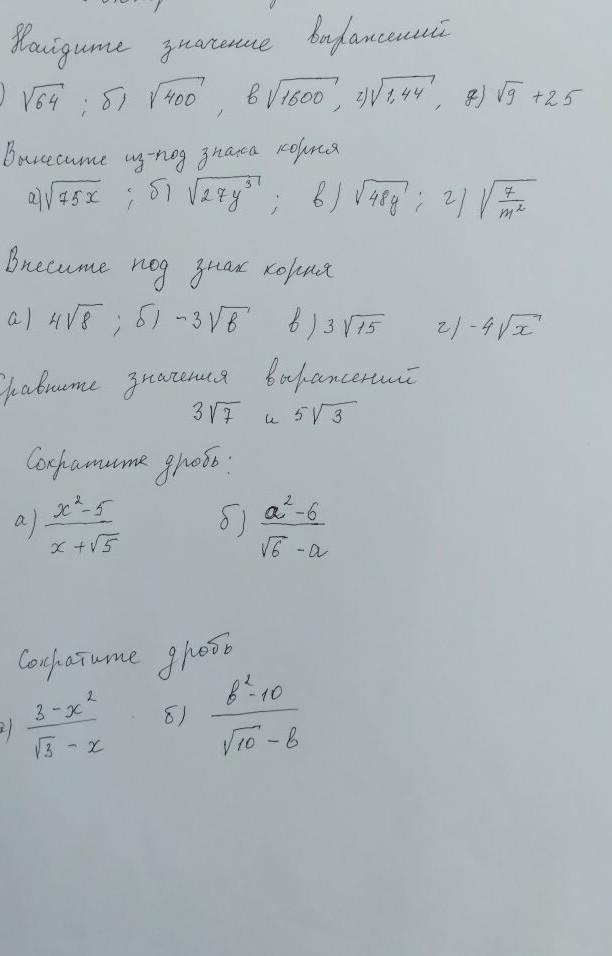 Найдите значение выражений
) √64 ; б) √400 , в √1600 , г) √1,44 , д) √9 + 25
Вынесите из-под знака корня
а) √75x ; б) √27y³ ; в) √48y ; г) √(7/m²)
Внесите под знак корня
а) 4√8 ; б) -3√b в) 3√15 г) -4√x
равните значения выражений
3√7 и 5√3
Сократите дробь:
а) (x²-5)/(x+√5) б) (a²-6)/(√6-a)
Сократите дробь
а) (3-x²)/(√3-x) б) (b²-10)/(√10-b)